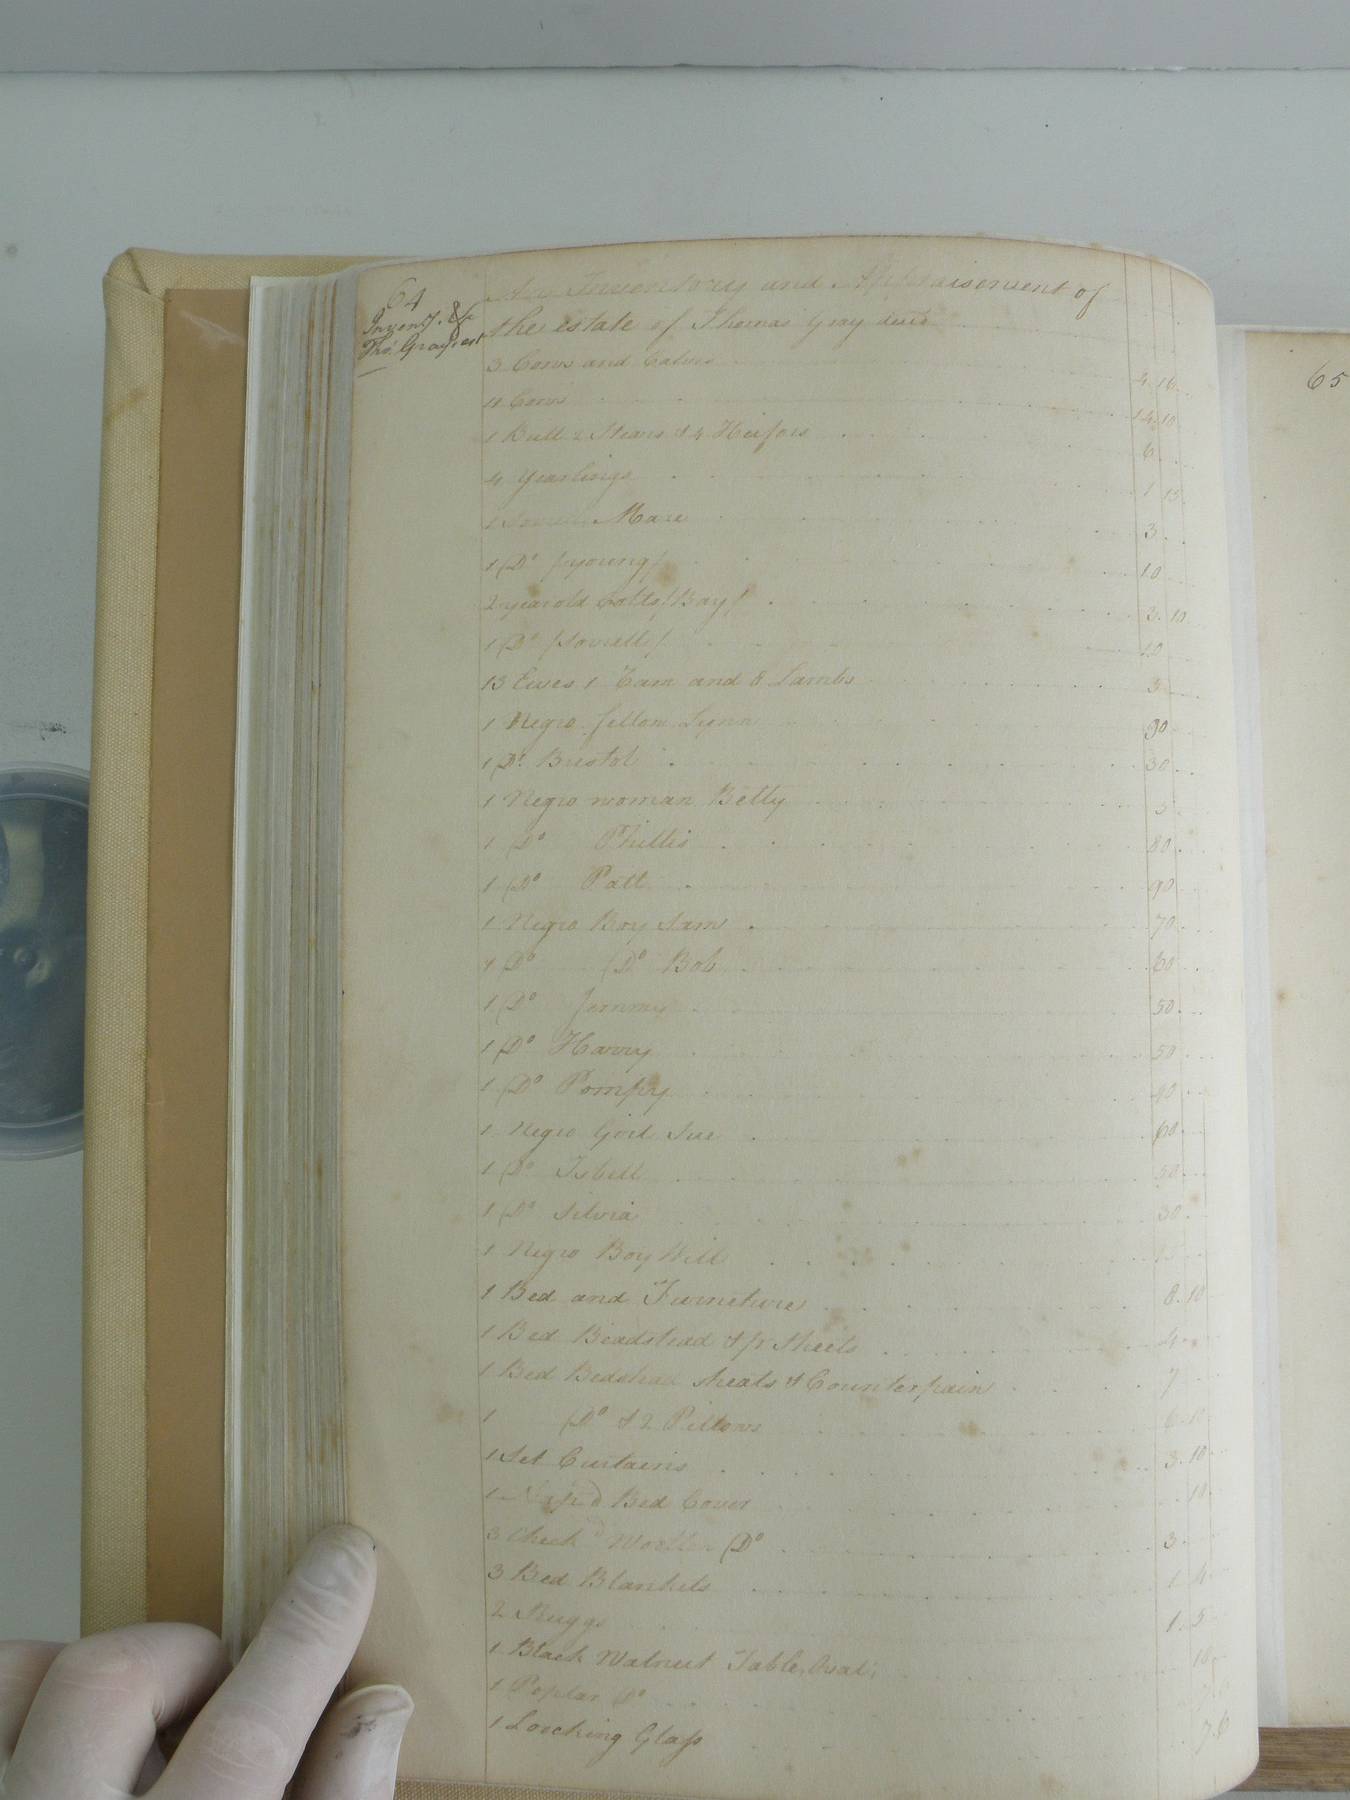 64
Inventy. &c
Thos. Grays est
An Inventory and Appraisement of
the estate of Thomas Gray decd
3 Cows and Calves 4.16
11 Cows 14.10
1 Bull 2 Stears & 4 Heifers 6
4 Yearlings 1 15
1 Mare 3
1 Do /young/ 10
2 year old Colts /Bay/ 3.10
1 Do /Sorrell/ 10
13 Ewes 1 Ram and 8 Lambs 3
1 Negro fellow Lynn 90
1 Do. Bristol 30
1 Negro woman Betty 5
1 Do Phillis 80
1 Do Patt 90
1 Negro Boy Sam 70
1 Do Do Bob 60
1 Do Jemmy 50
1 Do Harry 50
1 Do Pompy 40
1 Negro Girl Sue 60
1 Do Isbell 50
1 Do Silvia 30
1 Negro Boy Will
1 Bed and Furneture 8.10
1 Bed Beadstead & pr Sheets 4
1 Bed Bedstead sheats & Counterpain 7
1 Do & 2 Pillows 6.10
1 Set Curtains 3.10
1 Bed Cover 10
3 Check Do 3
3 Bed Blankets 1 4
2 Ruggs 1.5
1 Black Walnut Table, Oval; 18
1 Poplar Do
1 Loocking Glass 7.6
65